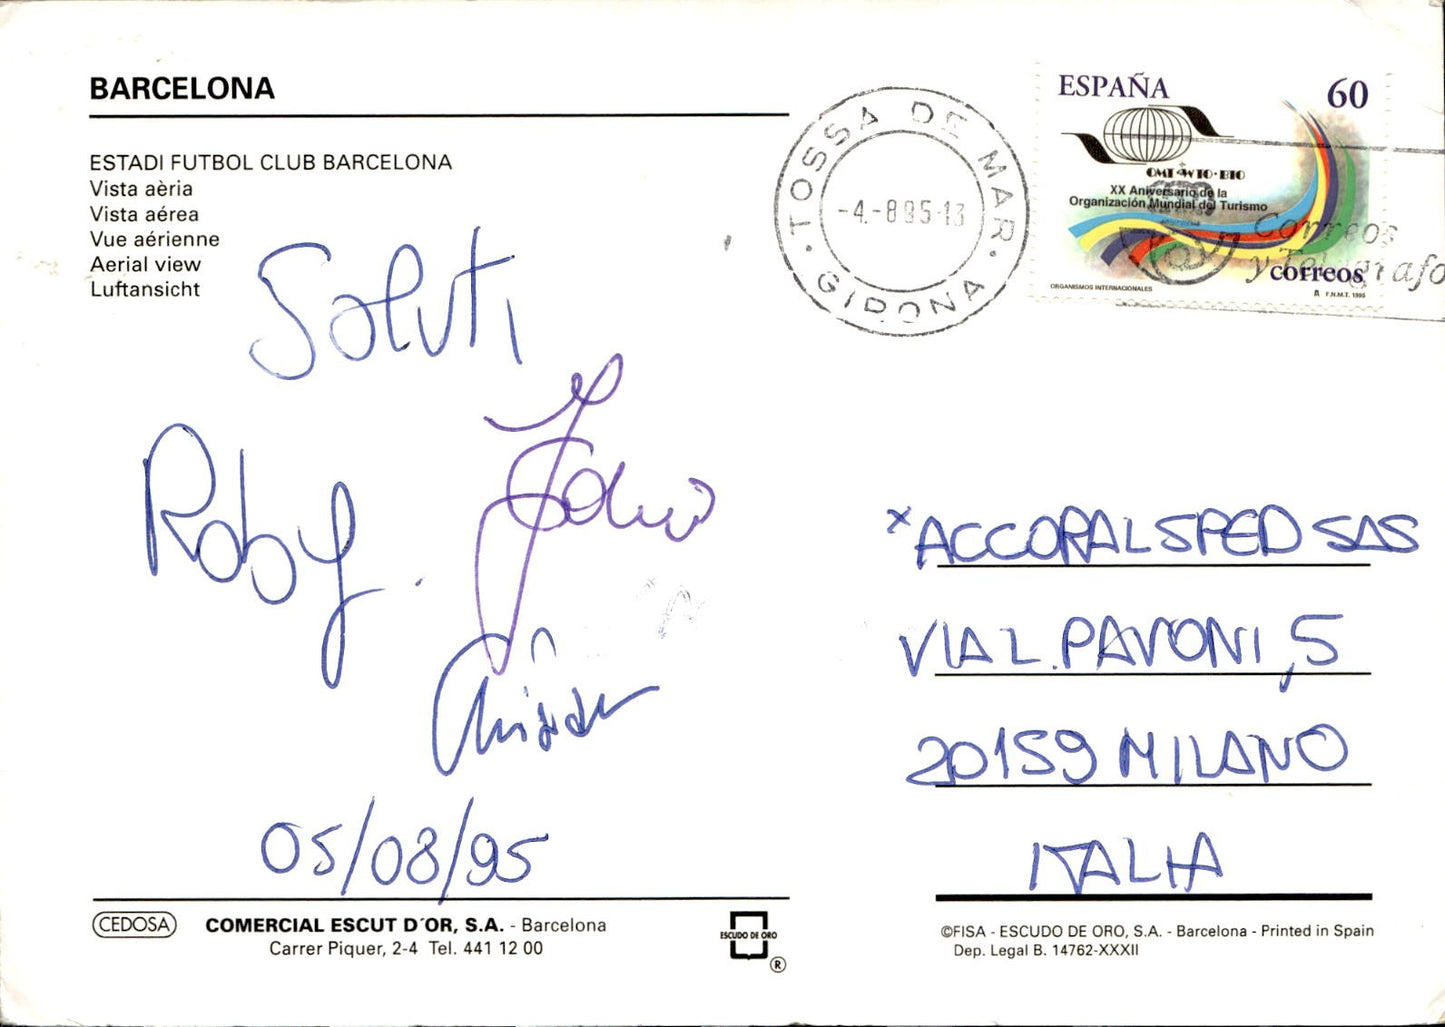 BARCELONA
ESTADI FUTBOL CLUB BARCELONA
Vista aèria
Vista aérea
Vue aérienne
Aerial view
Luftansicht
TOSSA DE MAR
-4.-8 95-13
GIRONA
ESPAÑA 60
OMT WTO·BTO
XX Aniversario de la
Organización Mundial del Turismo
Correos
correos
ORGANISMOS INTERNACIONALES
F.N.M.T. 1995
Saluti
Roby.
05/08/95
*ACCORALSPED SAS
VIA L. PAVONI, 5
20159 MILANO
ITALIA
CEDOSA
COMERCIAL ESCUT D´OR, S.A. - Barcelona
Carrer Piquer, 2-4 Tel. 441 12 00
ESCUDO DE ORO
®
©FISA - ESCUDO DE ORO, S.A. - Barcelona - Printed in Spain
Dep. Legal B. 14762-XXXII